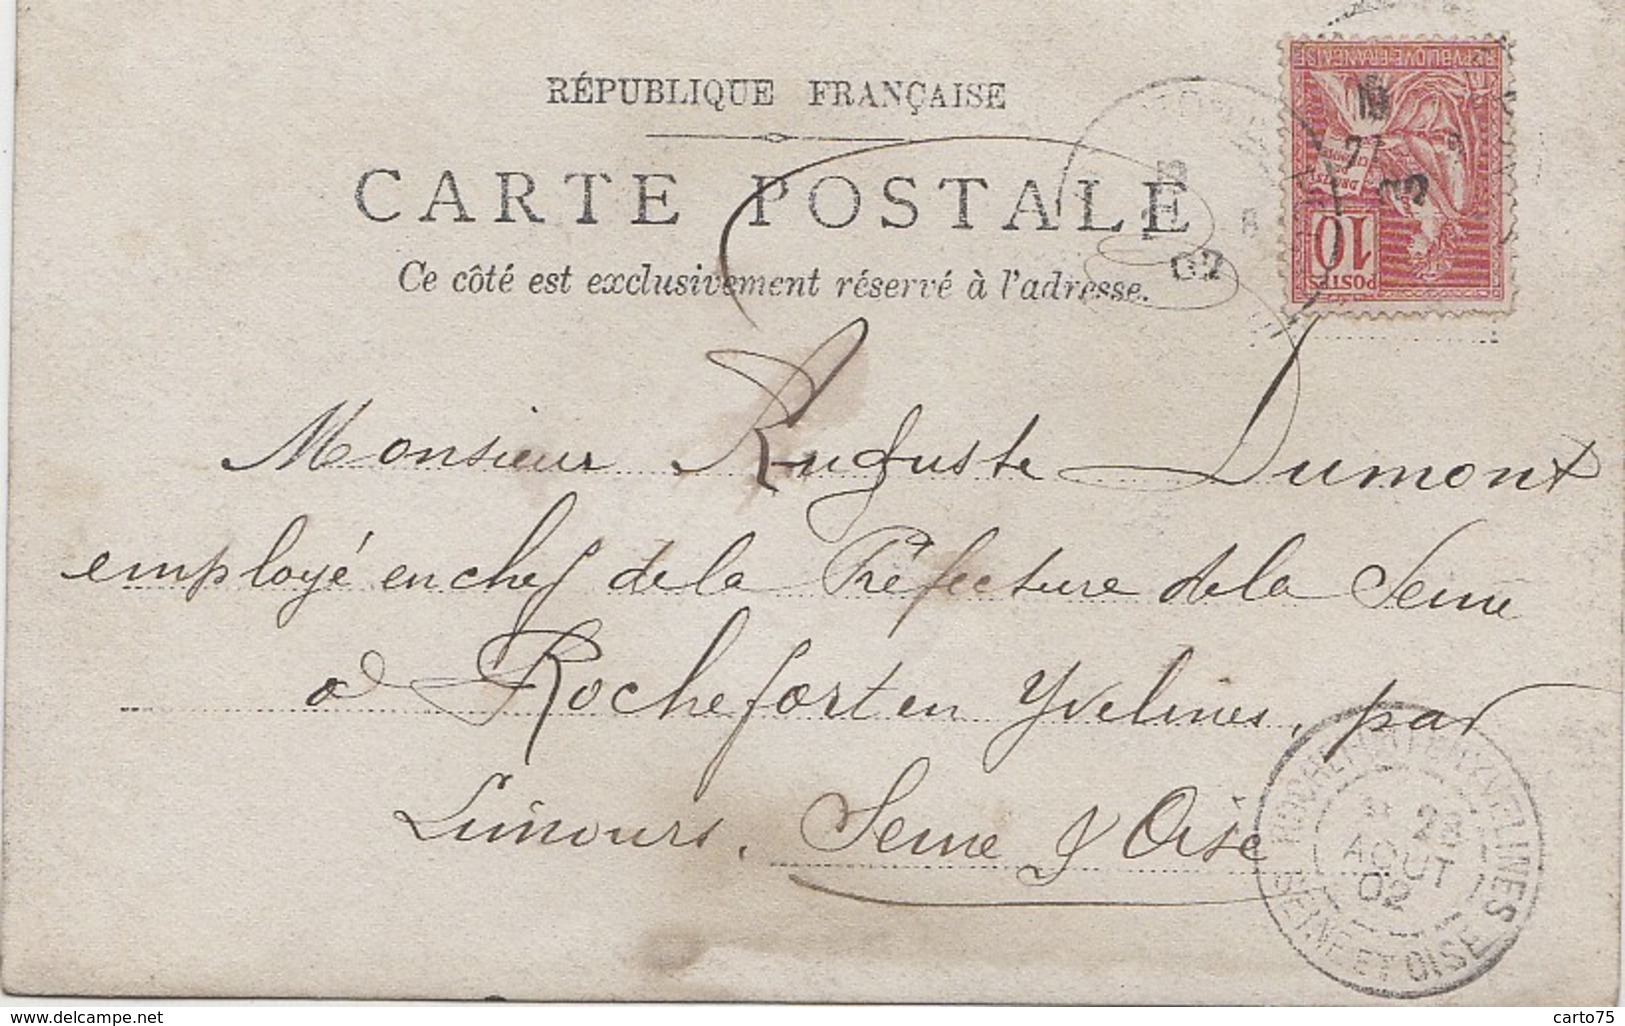 RÉPUBLIQUE FRANÇAISE
CARTE POSTALE
Ce côté est exclusivement réservé à l'adresse.
REPUBLIQUE FRANÇAISE
10
POSTES
02
Monsieur Auguste Dumont
employé en chef de la Préfecture de la Seine
à Rochefort en Yvelines, par
Limours. Seine & Oise
ROCHEFORT EN YVELINES
28
AOUT
02
SEINE ET OISE
www.delcampe.net
carto75